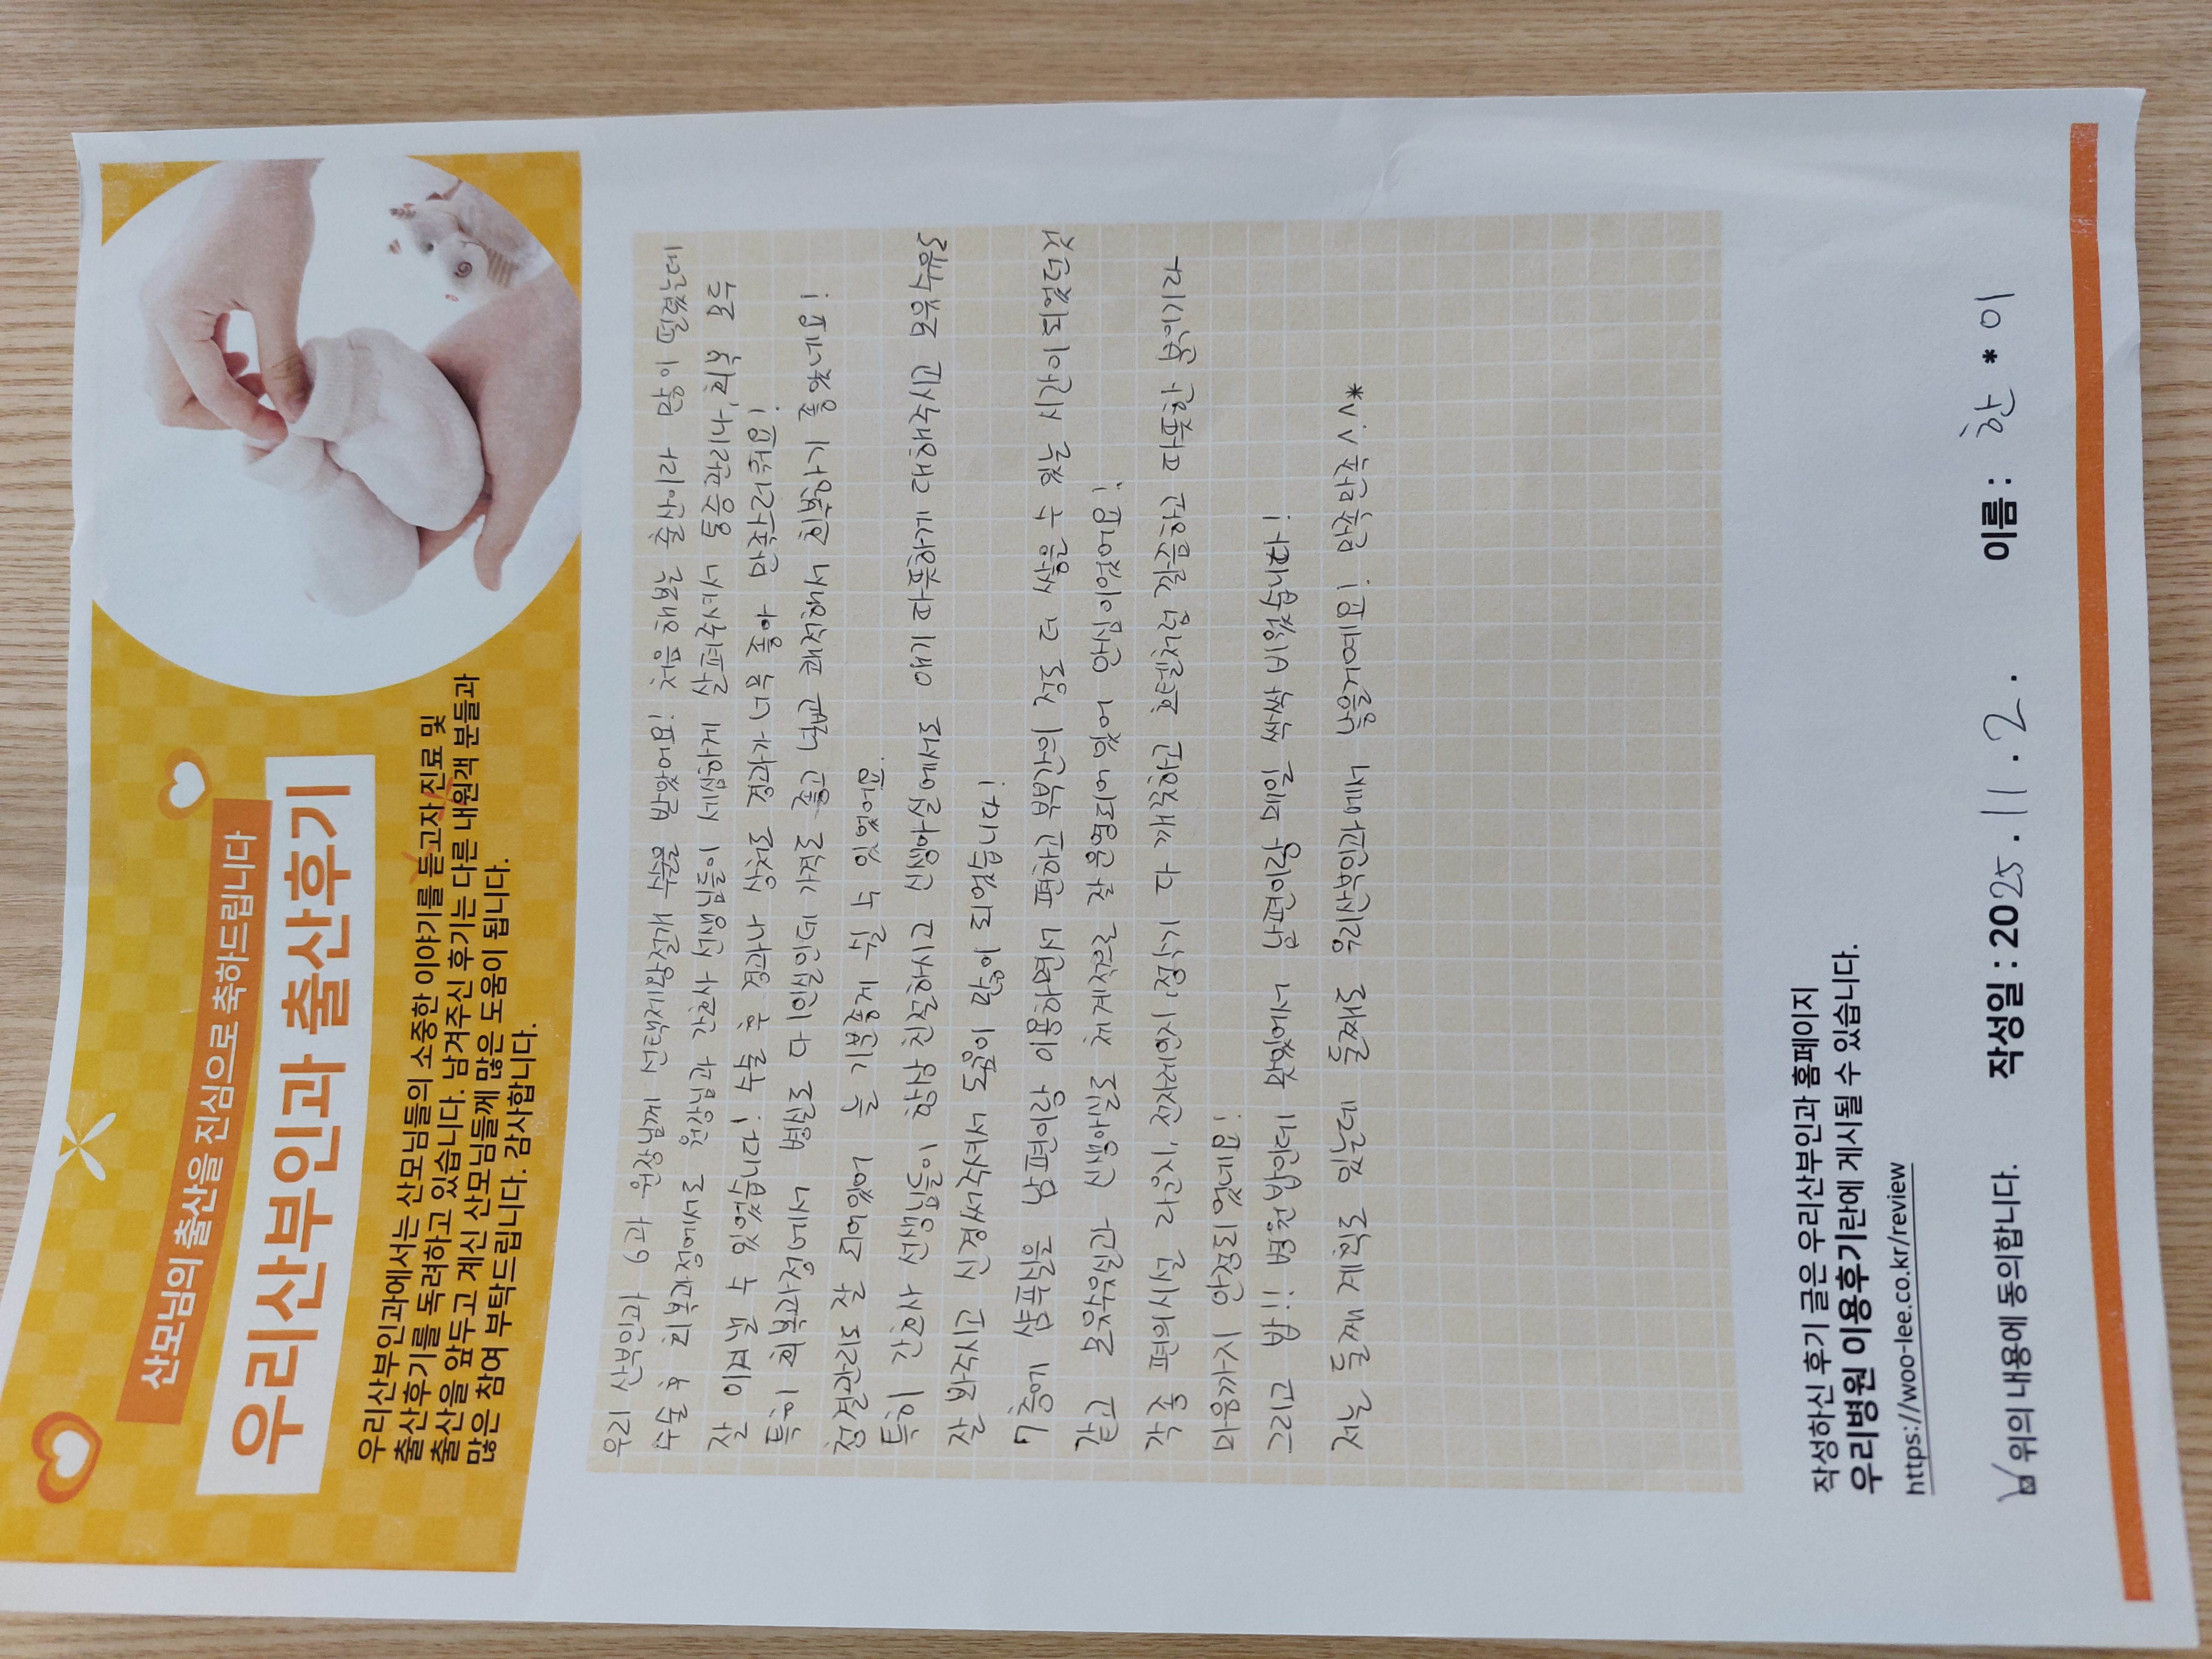 산모님의 출산을 진심으로 축하드립니다
우리산부인과 출산후기
우리산부인과에서는 산모님들의 소중한 이야기를 듣고자 진료 및
출산후기를 독려하고 있습니다. 남겨주신 후기는 다른 내원객 분들과
출산을 앞두고 계신 산모님들께 많은 도움이 됩니다.
많은 참여 부탁드립니다. 감사합니다.
우리 산부인과 9과 원장님께 선택제왕절개 수술을 받았어요! 처음 해본 출산이라 많이 떨렸는데
수술 후 회복과정에서도 원장님과 간호사 선생님들이 세심하게 살펴주셔서 통증관리나, 회복 모두
잘 이겨낼 수 있었습니다! 수술 후 경과나 상처도 경과가 너무 좋아 만족스러워요!
특히 회복과정에서 병실도 다인실인데 가격도 좋고 무척 쾌적해서 회복하기 좋았습니다!
청결관리도 잘 되어있어 늘 기분좋게 쉴 수 있었어요.
특히 간호사 선생님들이 항상 친절하시고 신생아실에서도 애기 따뜻하게 대해주시고 모유수유도
잘 봐주시고 신경써주셔서 도움이 많이 되었습니다!
7층에 샴푸실을 남편이랑 이용하면서 편하고 부부간의 정도 더 쌓을 수 있는 시간이 되었던 것
같고 모유수유실과 신생아실도 체계적으로 잘 운영되어 있어 안심이었어요!
각종 편의시설 라운지, 전자레인지, 정수기 다 깨끗하고 호텔처럼 깔끔하고 따뜻한 분위기라
마음까지 안정되었네요!
그리고 밥!! 병원밥인데 너무 맛있어서 남편이랑 매일 싹싹 비웠습니다!
저는 둘째 계획도 있는데 둘째도 우리산부인과에서 낳을거예요! 만족만족 v.v*
작성하신 후기 글은 우리산부인과 홈페이지
우리병원 이용후기란에 게시될 수 있습니다.
https://woo-lee.co.kr/review
위의 내용에 동의합니다. 작성일 : 2025. 11. 2. 이름 : 한 * 이